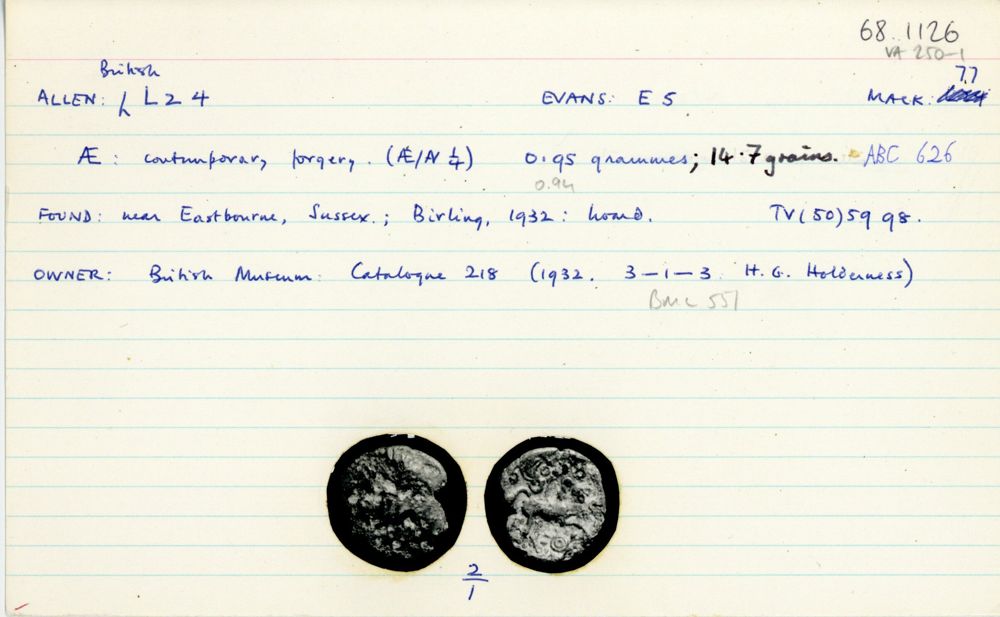 68.1126
VA 250-1
British
ALLEN: L L 2 4 EVANS: E 5 MACK: 77
Æ: contemporary forgery. (Æ/AV ¼) 0.95 grammes; 14.7 grains. ABC 626
0.94
FOUND: near Eastbourne, Sussex.; Birling, 1932: hoard. TV(50)59 98.
OWNER: British Museum: Catalogue 218 (1932. 3-1-3. H. G. Holderness)
BMC 551
2/1